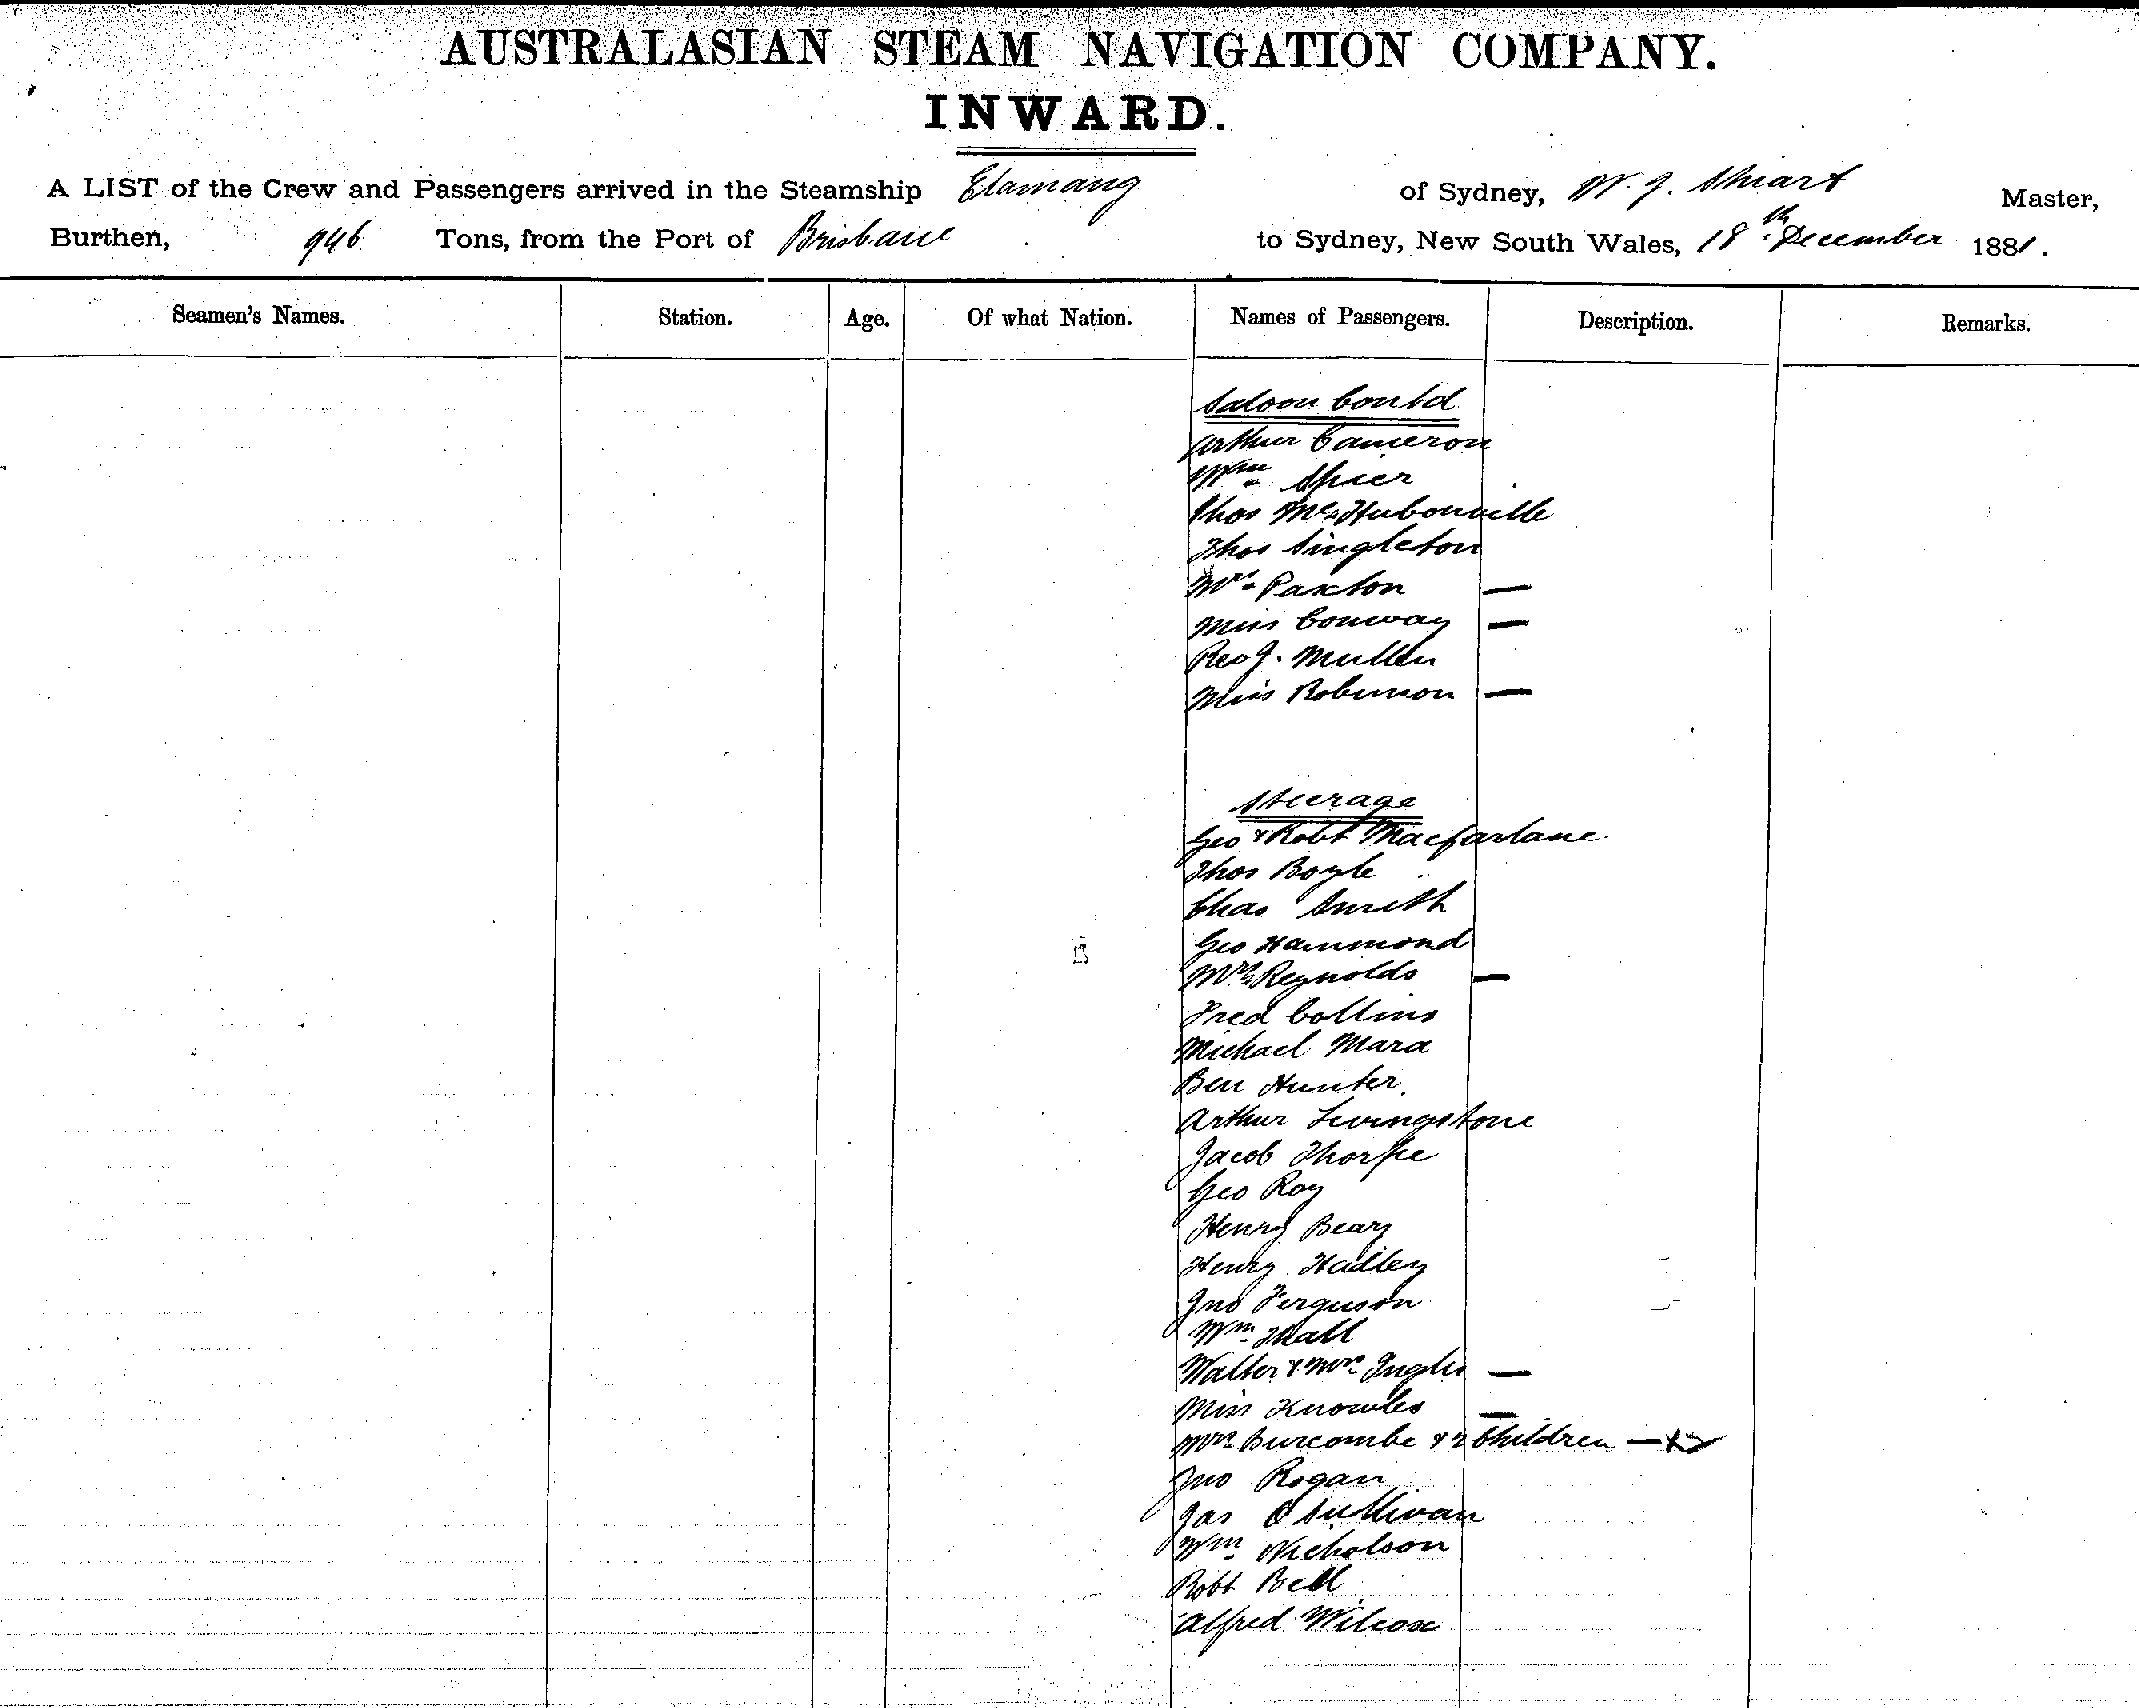 AUSTRALASIAN STEAM NAVIGATION COMPANY.
INWARD.
A LIST of the Crew and Passengers arrived in the Steamship Elamang of Sydney, W. J. Stuart Master,
Burthen, 946 Tons, from the Port of Brisbane to Sydney, New South Wales, 18th December 1881.
Seamen's Names. Station. Age. Of what Nation. Names of Passengers. Description. Remarks.
Saloon Contd
Arthur Cameron
Wm Spier
Thos
Thos Singleton
Mrs Paxton —
Miss Conway —
Rev J. Mullen
Miss Robinson —
Steerage
Geo & Robt Macfarlane
Thos Boyle
Chas Smith
Geo Hammond
Mrs Reynolds —
Fred Collins
Michael Mara
Ben Hunter
Arthur Livingstone
Jacob Thorpe
Geo Roy
Henry Beary
Henry Hadley
Jno Ferguson
Wm Hall
Walter & Mrs Inglis —
Miss Knowles —
Mrs Burcombe & 2 Children —
Jno Rogan
Jas O Sullivan
Wm Nicholson
Robt Bell
Alfred Wilcox